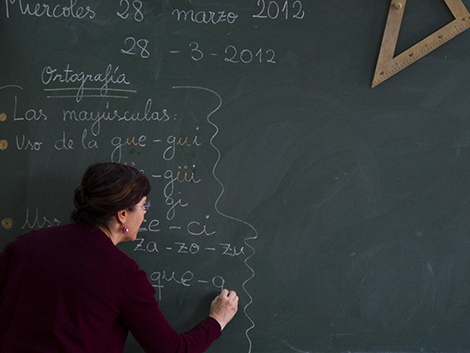 Miércoles 28 marzo 2012
28 - 3 - 2012
Ortografía
- Las mayúsculas:
Uso de la gue - gui
- güi
gi
Uso ce - ci
za - zo - zu
que - q